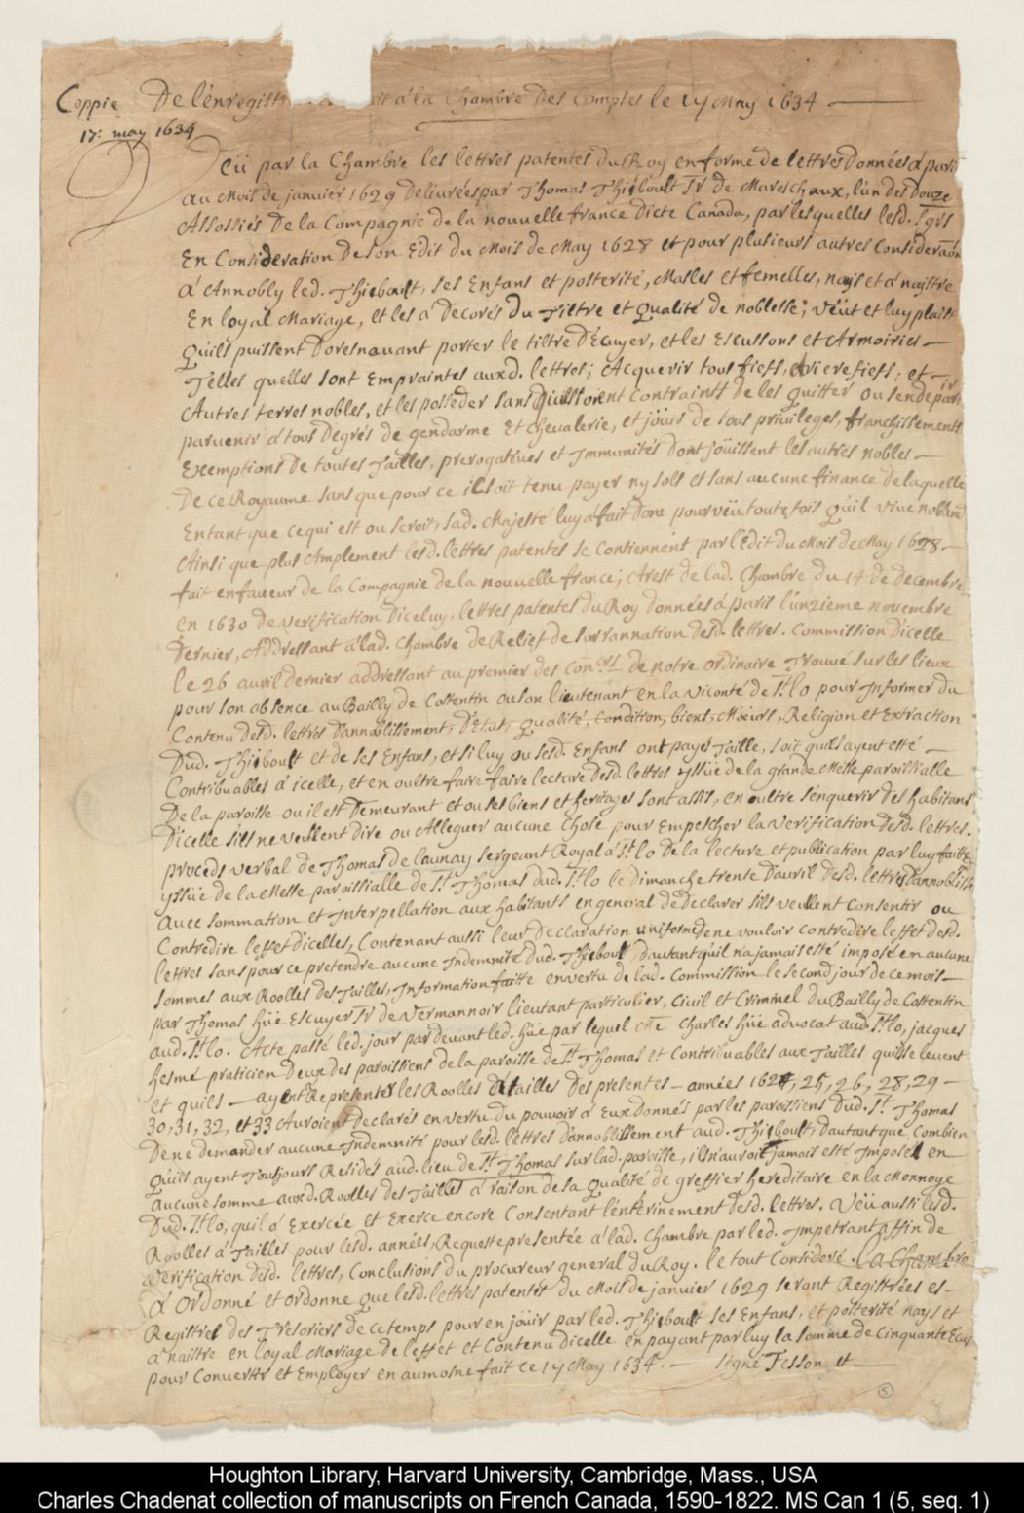 Coppie De l'enregistr fait á la Chambre Des Comptes le 17 May 1634
17: may 1634
Veü par la Chambre les lettres patentes du Roy en forme de lettres données á paris
au Mois de janvier 1629 delivrées par Thomas Thiboult Sr de Mareschaux, l'un des Douze
Assossiés De la Compagnie de la nouvelle france dicte Canada, par lesquelles lesd.
En Consideration de son Edit du Mois de May 1628 et pour plusieurs autres Consideraõn
á Annobly led. Thiboult, ses Enfans et posterité, Masles et femelles, nays et á naistre
En loyal Mariage, et les á Decorés du Tiltre et Qualité de noblesse; veut et luy plaist
Quils puissent Doresnavant porter le tiltre D'Ecuyer, et les Escussons et Armoiries
Telles quelles sont Empraintes auxd. lettres; Acquerir tous fiefs, arrierefiefs, et
Autres terres nobles, et les posseder sans Quils soient Contraints de les Quitter ou sendepartir
parvenir á tous Degrés de gendarme et Chevalerie, et joüir de tous privileges, franchissements
Exemptions De toutes Tailles, prerogatives et Immunités Dont joüissent les autres nobles
De ce Royaume sans que pour ce il soit tenu payer ny sols et sans aucune finance de laquelle
Entant que cequi est ou seroit, sad. Majesté luy á fait Don pourveü toutefois Qu'il vive noblemt
Ainsi que plus Amplement lesd. lettres patentes le Contiennent par l'Edit du Mois de May 1628
fait en faveur de la Compagnie de la nouvelle france; Arest de lad. Chambre du 14 de decembre
en 1630 de verification D'iceluy, lettres patentes du Roy données á paris l'unzieme novembre
Dernier, Addressant á lad. Chambre de Relief de surrannation desd. lettres. Commission d'icelle
le 26 avril dernier addressant au premier des Coners de notre ordinaire Trouvé sur les lieux
pour son absence au Bailly de Costentin ou son lieutenant en la viconté de St lo pour Informer du
Contenu desd. lettres D'annoblissement, D'Etat, Qualité, Condition, biens, Mœurs, Religion et Extraction
Dud. Thiboult et de ses Enfans, et si luy ou sesd. Enfans ont payé Taille, soit quils ayent esté
Contribuables á icelle, et en oultre faire faire lecture desd. lettres yssüe de la grande Messe paroissialle
De la paroisse ou il est Demeurant et ou ses biens et heritages sont assis, en oultre s'enquerir des habitans
D'icelle sils ne veullent dire ou Alleguer aucune Chose pour Empescher la verification desd. lettres.
procéds verbal de Thomas de launay sergeant Royal á St lo de la lecture et publication par luy faitte
yssüe de la Messe paroissialle de St Thomas dud. St lo le dimanche trente D'avril desd. lettres d'annobliss
avec sommation et Interpellation aux habitants en general de declarer sils veullent consentir ou
Contredire l'effet d'icelles, Contenant aussi leur declaration uniforme de ne vouloir contredire l'effet desd.
lettres sans pour ce pretendre aucune Indemnité Dud. Thiboult, Dautant qu'il n'a jamais esté imposé en aucune
sommes aux Roolles des Tailles, Information faitte en vertu de lad. Commission le second jour de ce mois
par Thomas hüe Escuyer Sr de vermannoir lieutant particulier, Civil et Criminel du Bailly de Costentin
aud. St lo. Acte passé led. jour par devant led. hüe par lequel Me Charles hüe advocat aud. St lo, jacques
hesmé praticien Deux des paroissiens de la paroisse de St Thomas et Contribuables aux Tailles
et quils ayent Representé les Roolles de tailles Des presentes années 1624, 25, 26, 28, 29
30, 31, 32, et 33 Auroient Declarés en vertu du pouvoir á Eux donnés par les paroissiens Dud. St Thomas
De ne demander aucune Indemnité pour lesd. lettres d'annoblissement aud. Thiboult, Dautant que Combien
Quils ayent Tousjours Residés aud. lieu de St Thomas sur lad. paroisse, ils n'auroit jamais esté Imposés en
aucune somme auxd. Roolles des Tailles á raison de sa Qualité de greffier hereditaire en la Monnoye
Dud. St lo, qu'il á Exercée et Exerce encore Consentant l'enterinement desd. lettres. Veu aussi lesd.
Roolles á Tailles pour lesd. années, Requeste presentée á lad. Chambre par led. Impetrant affin de
verification desd. lettres, Conclusions du procureur general du Roy. le tout Consideré. La Chambre
á Ordonné et ordonne que lesd. lettres patentes du Mois de janvier 1629 seront Registrées es
Registres des Tresoriers de ce temps pour en joüir par led. Thiboult ses Enfans, et posterité nays et
á naitre en loyal Mariage de l'effet et Contenu d'icelle en payant par luy la somme de Cinquante Ecus
pour Convertir et Employer en aumosne fait ce 17 May 1634. signé Tesson et
5
Houghton Library, Harvard University, Cambridge, Mass., USA
Charles Chadenat collection of manuscripts on French Canada, 1590-1822. MS Can 1 (5, seq. 1)